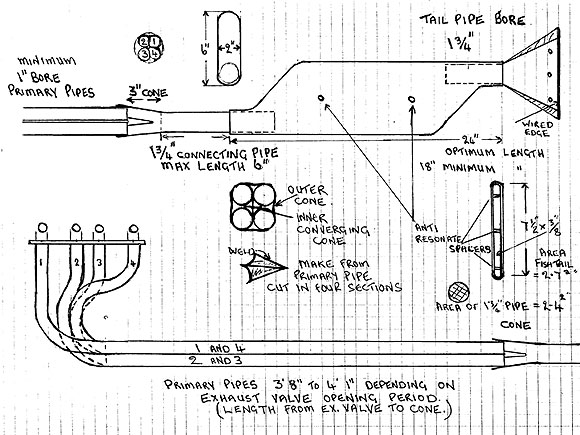 TAIL PIPE BORE
1¾"
2 1
3 4
6"
2"
MINIMUM
1" BORE
PRIMARY PIPES
3" CONE
WIRED
EDGE
1¾" CONNECTING PIPE
MAX LENGTH 6"
24"
OPTIMUM LENGTH
18" MINIMUM "
OUTER
CONE
INNER
CONVERGING
CONE
ANTI
RESONATE
SPACERS
7½" × 3/8"
AREA
FISHTAIL
= 2.7"
WELD
MAKE FROM
PRIMARY PIPE
CUT IN FOUR SECTIONS
AREA OF 1¾" PIPE = 2.4"
CONE
1 2 3 4
1 AND 4
2 AND 3
PRIMARY PIPES 3' 8" TO 4' 1" DEPENDING ON
EXHAUST VALVE OPENING PERIOD.
(LENGTH FROM EX. VALVE TO CONE.)